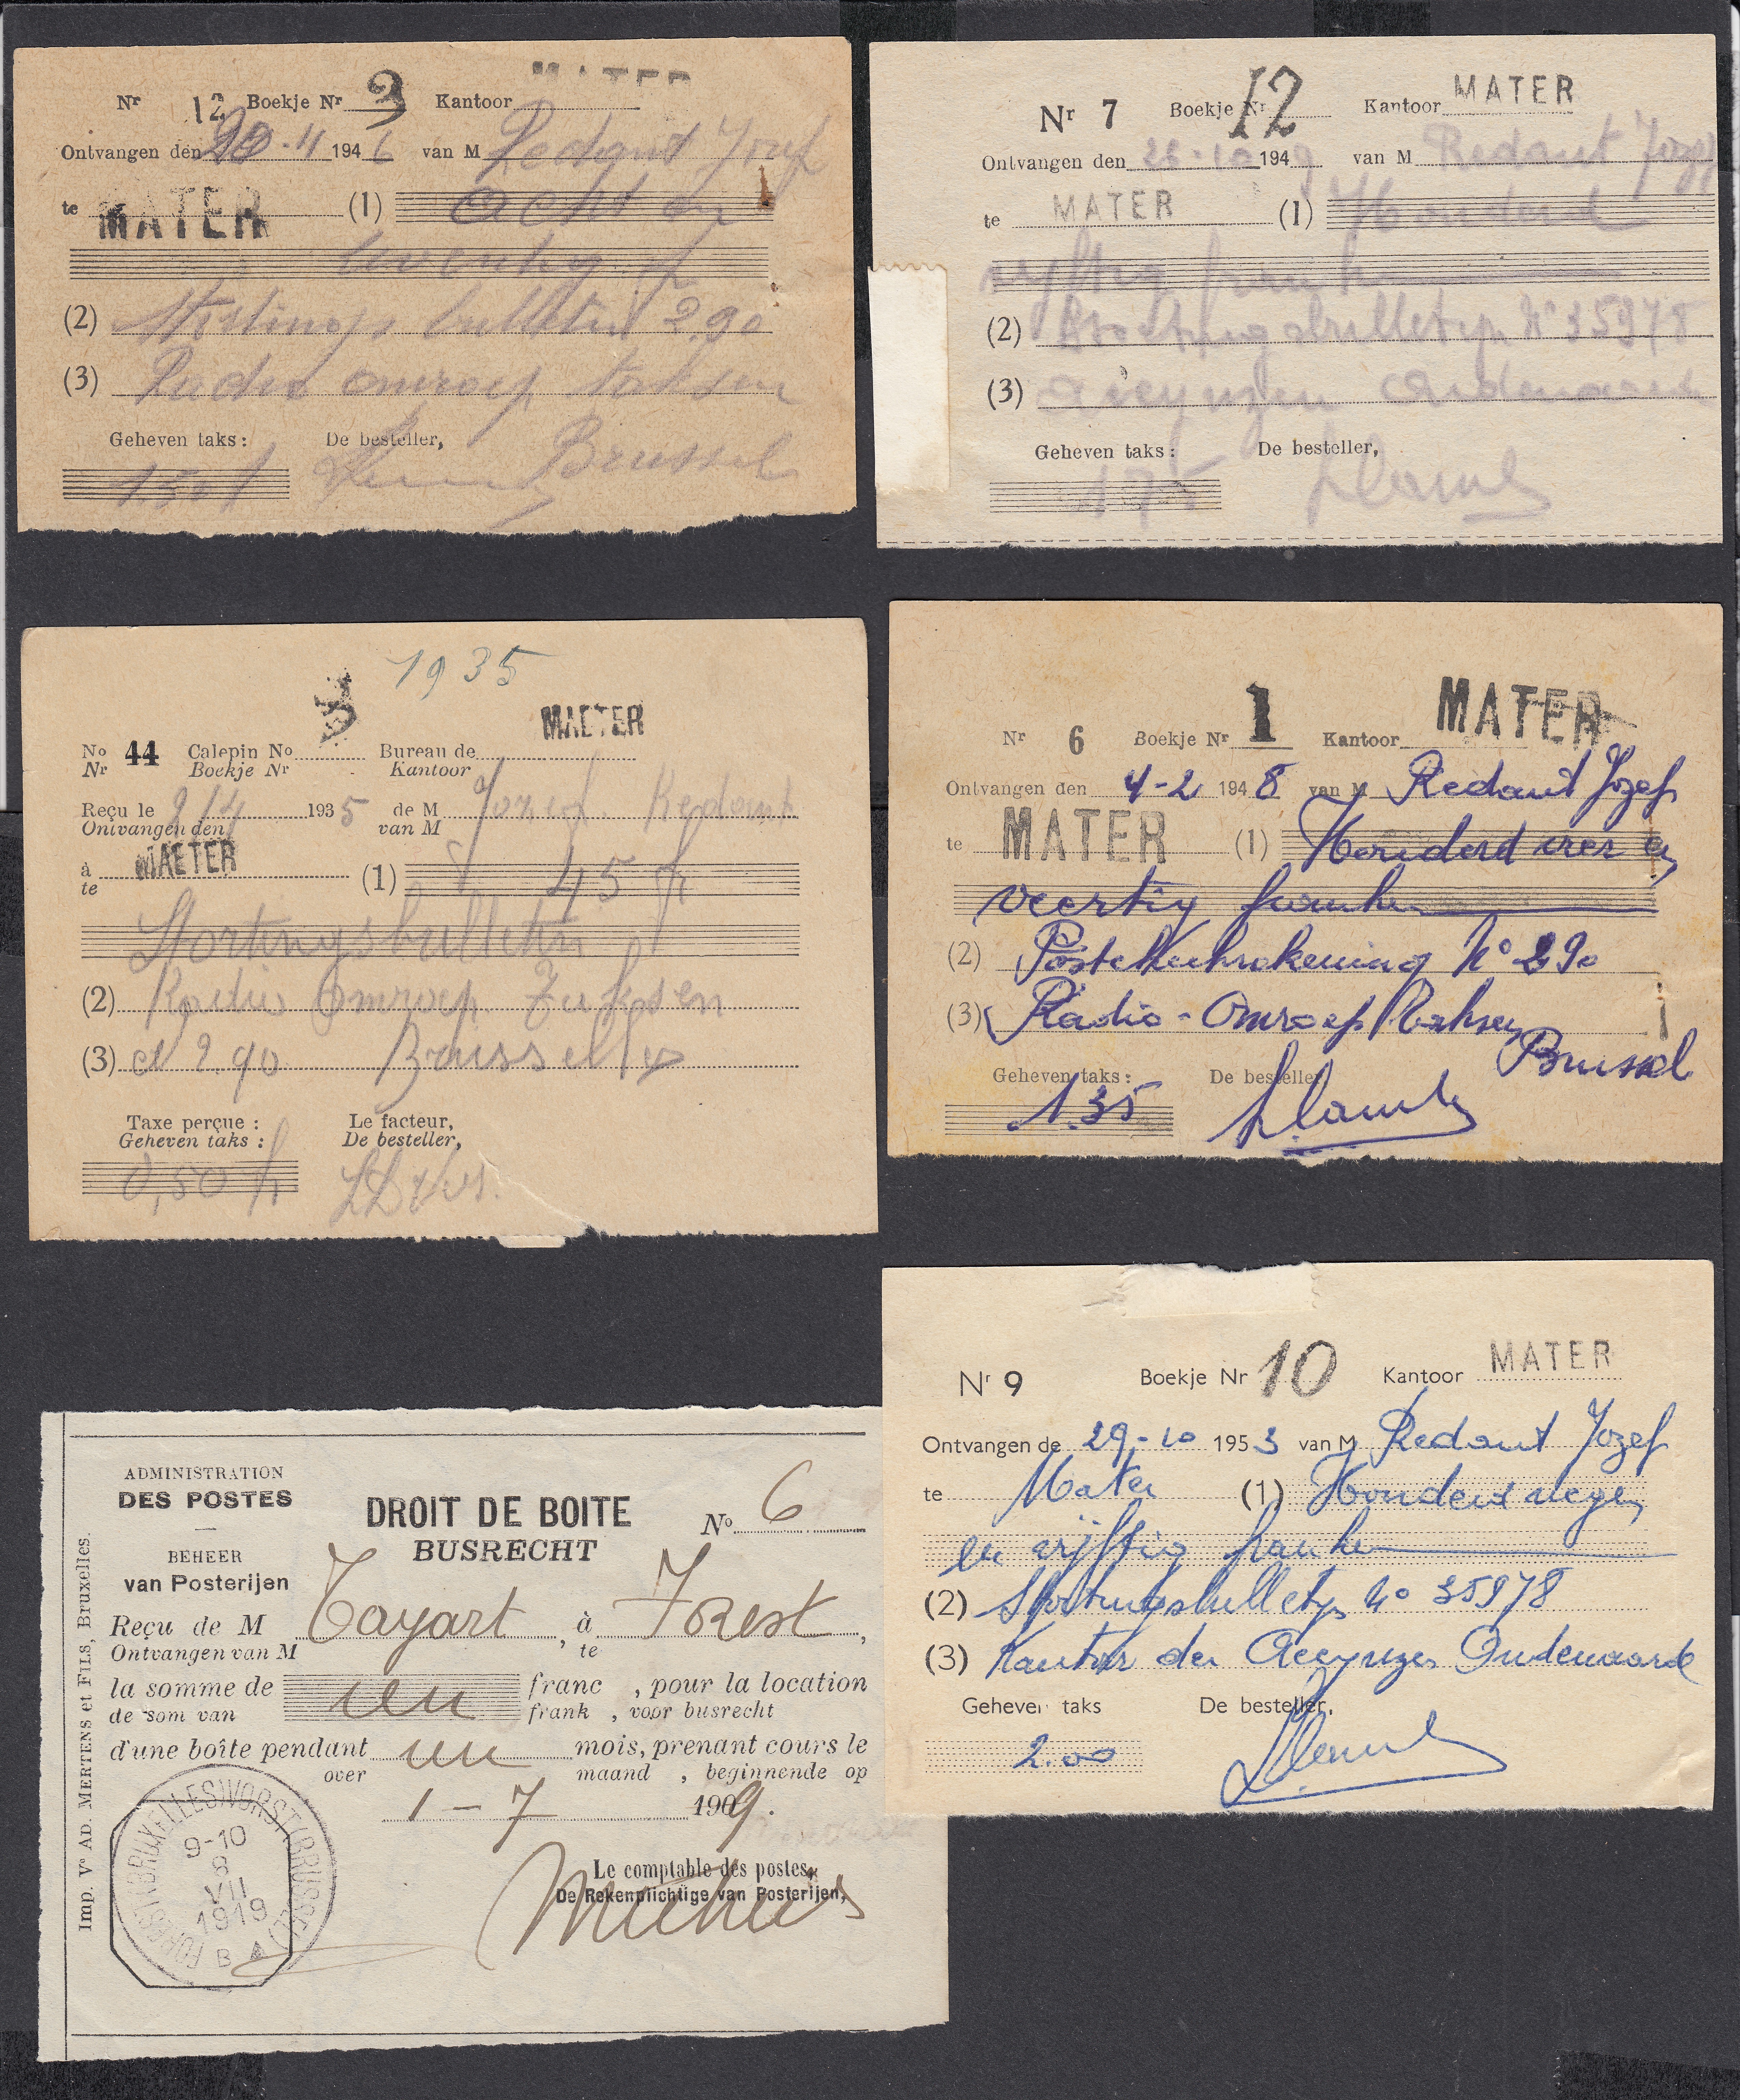 Nr 12 Boekje Nr 3 Kantoor MATER
Ontvangen den 20-11 1946 van M Redant Jozef
te MATER (1) acht en
seventig f
(2) Stortings bulletin 290
(3) Radio omroep taksen
Geheven taks: De besteller, Brussel
1.50 f
Nr 7 Boekje Nr 12 Kantoor MATER
Ontvangen den 26-10 1949 van M Redant Jozef
te MATER (1) Honderd
vijftig frank
(2) Stortingsbulletijn N° 35978
(3) Accynzen Oudenaarde
Geheven taks: De besteller,
1.75
1935
No 44 Calepin No 3 Bureau de MAETER
Nr Boekje Nr Kantoor
Reçu le 9/4 1935 de M Jozef Redant
Ontvangen den van M
à MAETER (1) 45 fr
te
Stortingsbulletin
(2) Radio Omroep Taksen
(3) 290 Brussel
Taxe perçue: Le facteur,
Geheven taks: De besteller,
0,50 fr
Nr 6 Boekje Nr 1 Kantoor MATER
Ontvangen den 4-2 1948 van M Redant Jozef
te MATER (1) Honderd vier en
veertig frank
(2) Postcheckrekening N° 290
(3) Radio-Omroep Taksen
Brussel
Geheven taks: De besteller
1.35
ADMINISTRATION
DES POSTES
BEHEER
van Posterijen
DROIT DE BOITE No 6
BUSRECHT
Reçu de M Tayart, à Forest,
Ontvangen van M te
la somme de un franc, pour la location
de som van frank, voor busrecht
d'une boîte pendant un mois, prenant cours le
over maand, beginnende op
1-7 1909.
Le comptable des postes,
De Rekenplichtige van Posterijen,
FOREST (BRUXELLES) VORST (BRUSSEL)
9-10
8
VII
1919
B
Imp. Ve AD. MERTENS et FILS, Bruxelles.
Nr 9 Boekje Nr 10 Kantoor MATER
Ontvangen de 29-10 1953 van M Redant Jozef
te Mater (1) Honderd negen
en vijftig frank
(2) Stortingsbulletijn No 35978
(3) Kantoor der Accynzen Oudenaarde
Geheven taks De besteller,
2.00